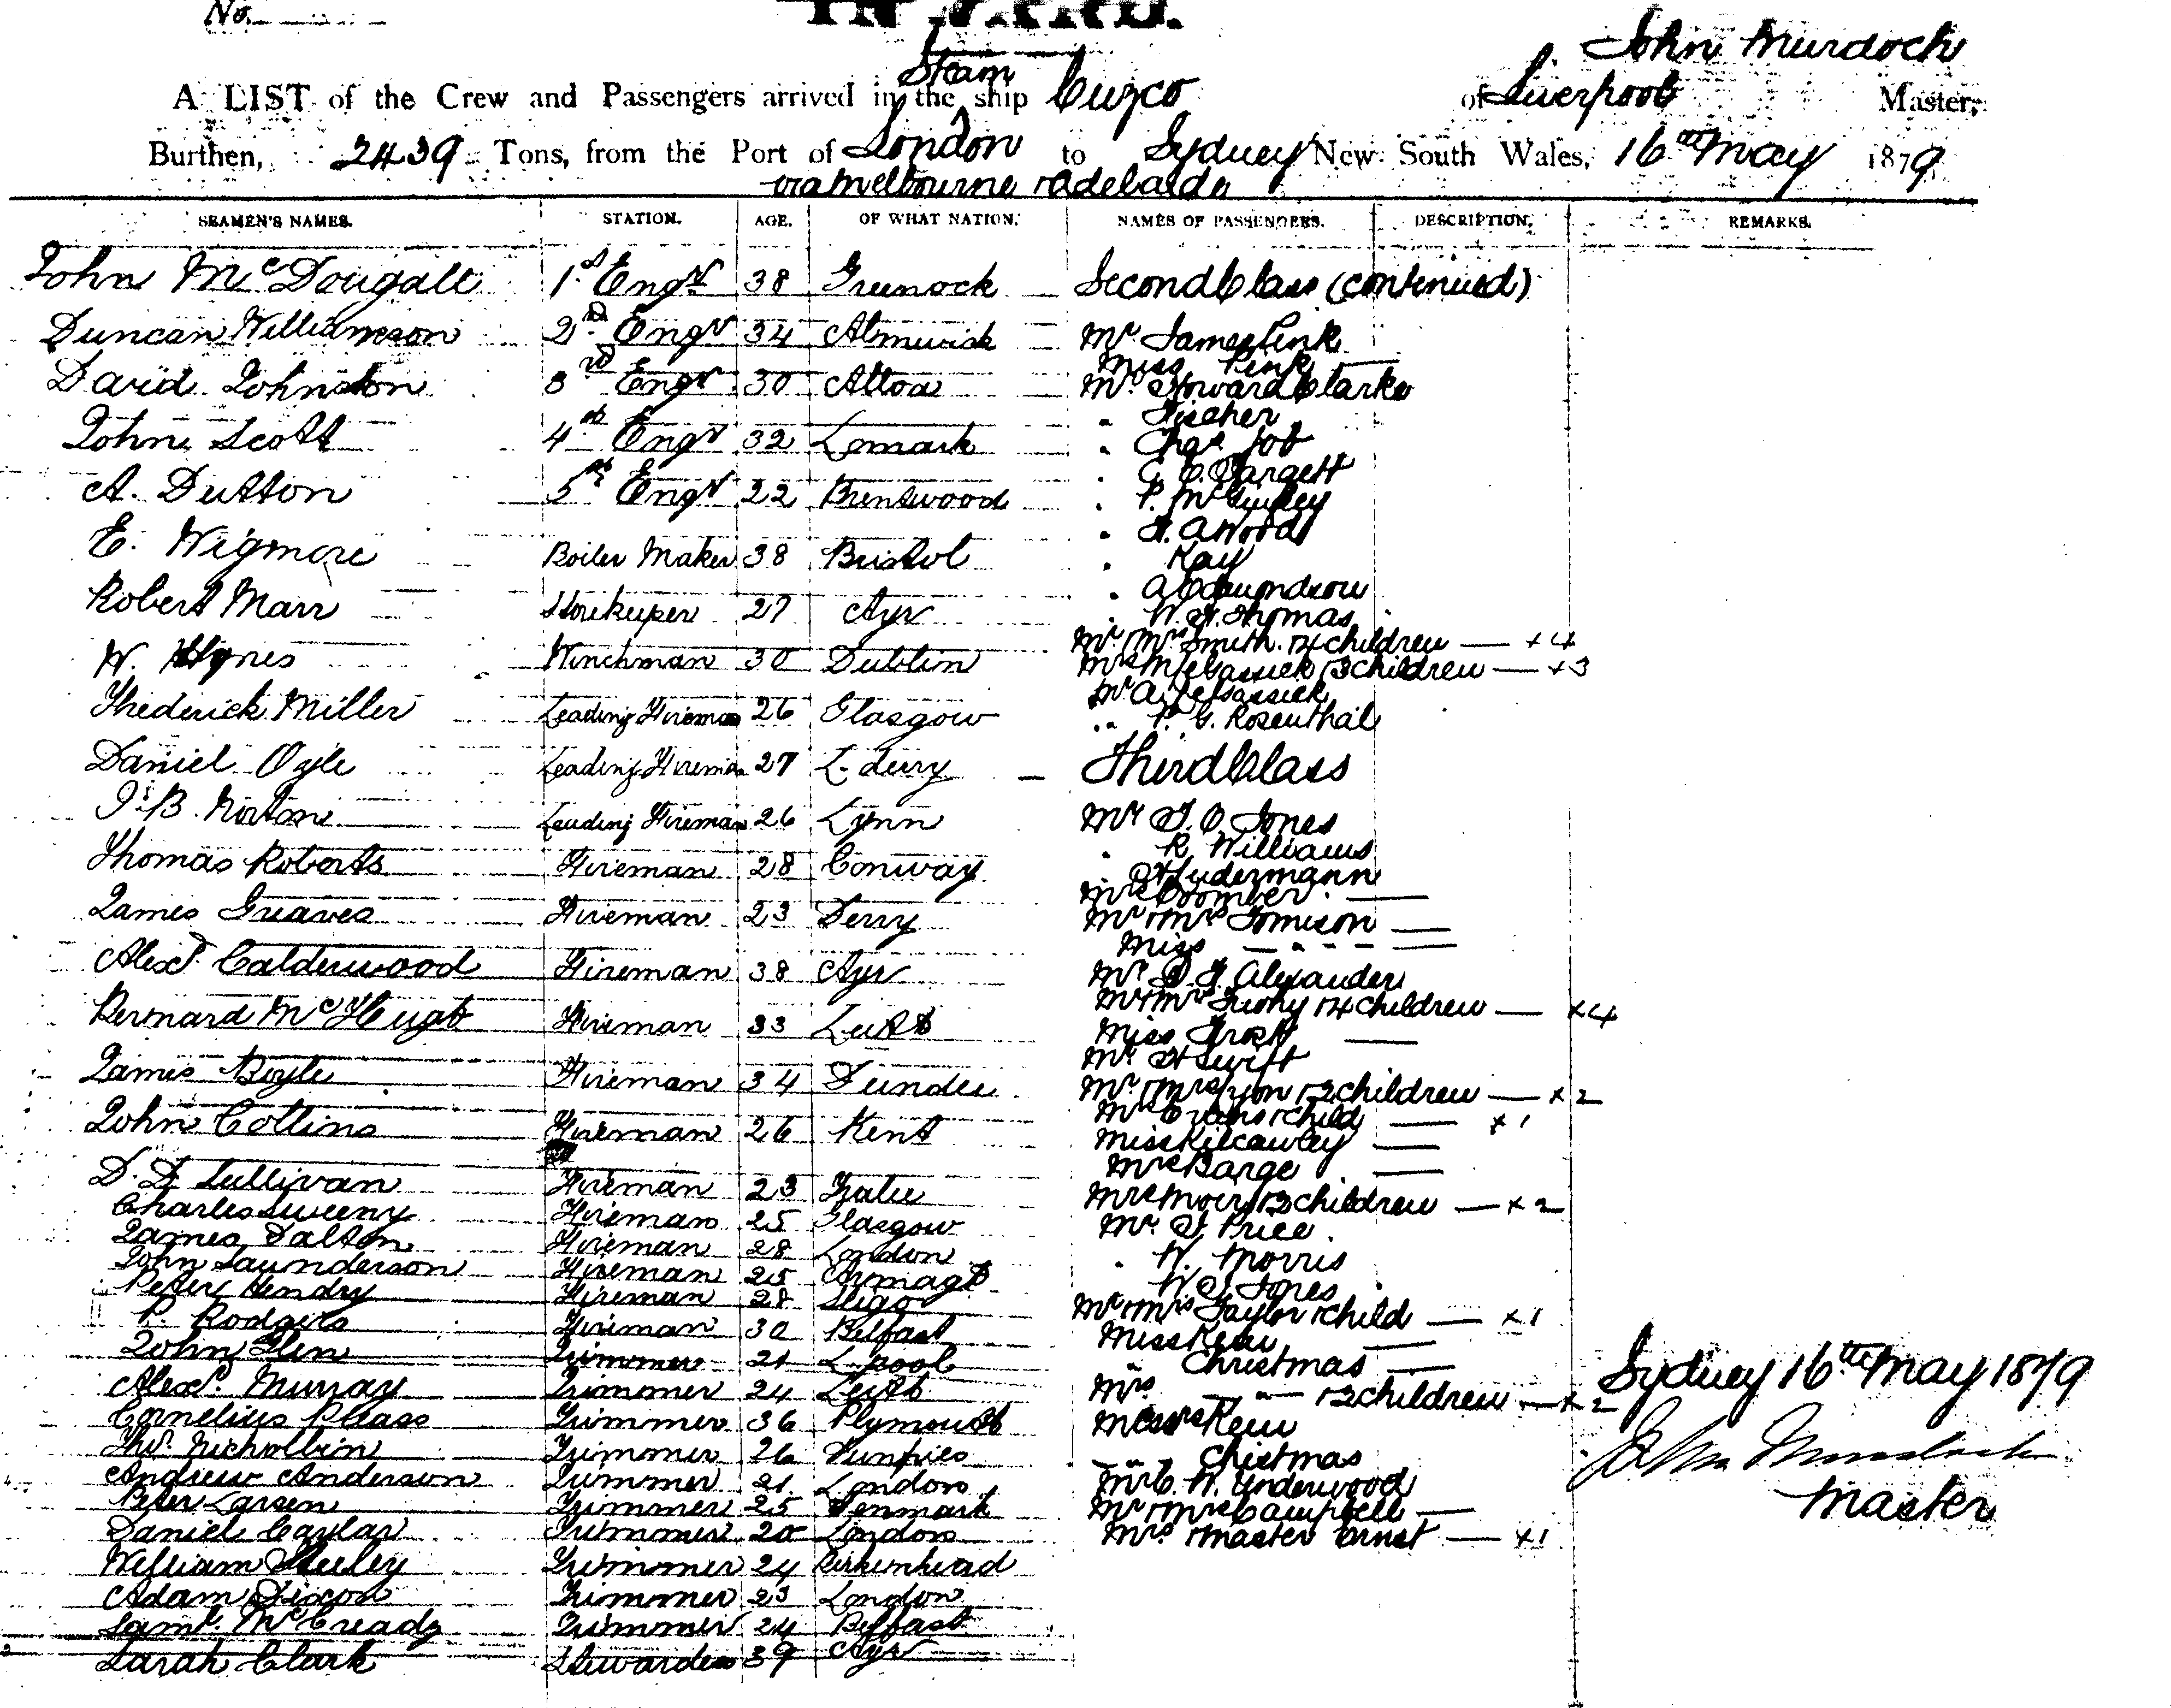 No.
INWARD.
John Murdoch
Steam
A LIST of the Crew and Passengers arrived in the ship Cuzco of Liverpool Master,
Burthen, 2439 Tons, from the Port of London to Sydney New South Wales, 16th May 1879
via Melbourne & Adelaide
SEAMEN'S NAMES. STATION. AGE. OF WHAT NATION. NAMES OF PASSENGERS. DESCRIPTION. REMARKS.
John McDougall 1st Engr 38 Greenock
Duncan Williamson 2nd Engr 34 Alnwick
David Johnston 3rd Engr 30 Alloa
John Scott 4th Engr 32 Lanark
A. Dutton 5th Engr 22 Brentwood
E. Wigmore Boiler Maker 38 Bristol
Robert Marr Storekeeper 27 Ayr
W. Hynes Winchman 30 Dublin
Frederick Miller Leading Fireman 26 Glasgow
Daniel Ogle Leading Fireman 27 L-derry
J. B. Norton Leading Fireman 26 Lynn
Thomas Roberts Fireman 28 Conway
James Greaves Fireman 23 Derry
Alexr. Calderwood Fireman 38 Ayr
Bernard McHugh Fireman 33 Leith
James Boyle Fireman 34 Dundee
John Collins Fireman 26 Kent
D. D. Sullivan Fireman 23 Tralee
Charles Sweeny Fireman 25 Glasgow
James Dalton Fireman 28 London
John Saunderson Fireman 25 Armagh
Peter Hendry Fireman 28 Sligo
P. Rodgers Fireman 30 Belfast
John Glen Trimmer 21 L-pool
Alexr. Murray Trimmer 24 Leith
Cornelius Pleass Trimmer 36 Plymouth
Thos. Trimmer 26 Dumfries
Andrew Anderson Trimmer 21 London
Peter Larsen Trimmer 25 Denmark
Daniel Caylar Trimmer 20 London
William Trimmer 24 Birkenhead
Adam Dixon Trimmer 23 London
Saml. McCready Trimmer 24 Belfast
Sarah Clark Stewardess 39 Ayr
Second Class (continued)
Mr. James Pink
Miss Pink —
Mr. Howard Clarke
" Fischer
" Chas. Job
" C. E. Targett
" P. McGuiley
" H. A Wood
" Kay
" A Edmundson
" W. H. Thomas
Mr. & Mrs Smith & 4 children — + 4
Mrs & 3 children — + 3
Mr. A
" P. G. Rosenthal
Third Class
Mr T. O Jones
" R. Williams
Ludermann
Mrs Coomber —
Mr & Mrs Tomison —
Miss — " — —
Mr. D. H. Alexander
Mr & Mrs & 4 children — + 4
Miss Trott —
Mr. H Swift
Mr. & Mrs Lyon & 2 children — + 2
Mrs Evans & child — + 1
Miss Kilcawley —
Mrs Barge —
Mrs Moir & 2 children — + 2
Mr. J Price
" W. Morris
W J Jones
Mr & Mrs Taylor & child — + 1
Miss Kew —
" Christmas —
Mrs — " — & 2 children — + 2
Messrs Kew
" Christmas
Mr C. W. Underwood
Mr & Mrs Campbell —
Mrs. & Master Ernst — + 1
Sydney 16th May 1879
John Murdoch
Master